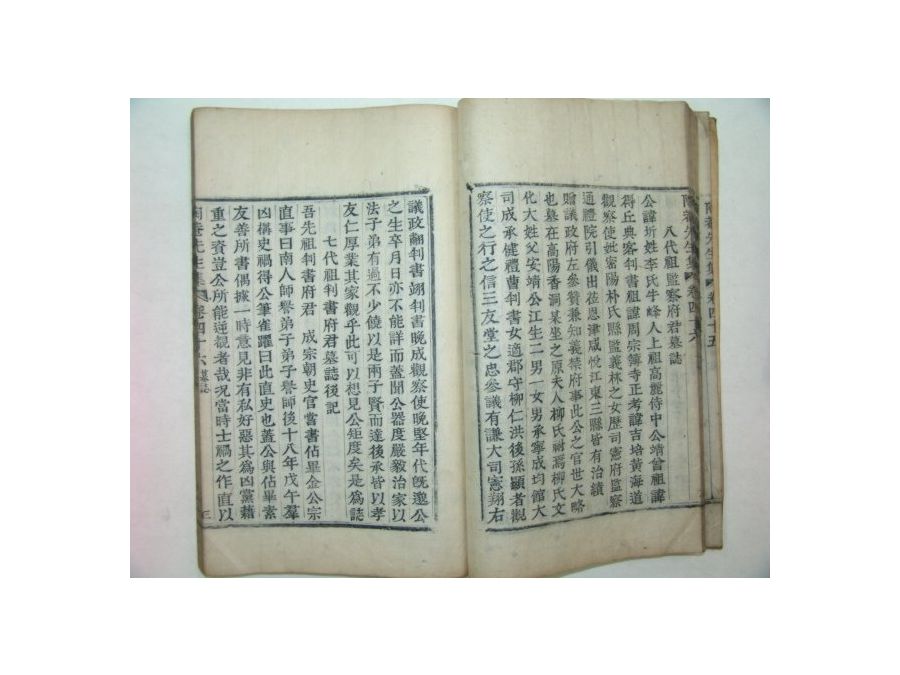 陶菴先生集卷四十六
八代祖監察府君墓誌
公諱圻姓李氏牛峰人上祖高麗侍中公靖曾祖諱
得丘典客判書祖諱周宗簿寺正考諱吉培黃海道
觀察使妣密陽朴氏縣監義林之女歷司憲府監察
通禮院引儀出莅恩津咸悅江東三縣皆有治績
贈議政府左參贊兼知義禁府事此公之官世大略
也墓在高陽香洞某坐之原夫人柳氏祔焉柳氏文
化大姓父安靖公江生二男一女男承寧成均館大
司成承健禮曹判書女適郡守柳仁洪後孫顯者觀
察使之行之信三友堂之忠參議有謙大司憲翔右
議政䎘判書翊判書晚成觀察使晚堅年代旣邈公
之生卒月日亦不能詳而蓋聞公器度嚴毅治家以
法子弟有過不少饒以是兩子賢而達後承皆以孝
友仁厚業其家觀乎此可以想見公矩度矣是爲誌
七代祖判書府君墓誌後記
吾先祖判書府君 成宗朝史官嘗書佔畢金公宗
直事曰南人師譽弟子弟子譽師後十八年戊午羣
凶構史禍得公筆雀躍曰此直史也蓋公與佔畢素
友善所書偶據一時意見非有私好惡其爲凶黨藉
重之資豈公所能逆覩者哉况當時士禍之作直以
陶菴先生集 卷四十六 墓誌 三
卷四十五